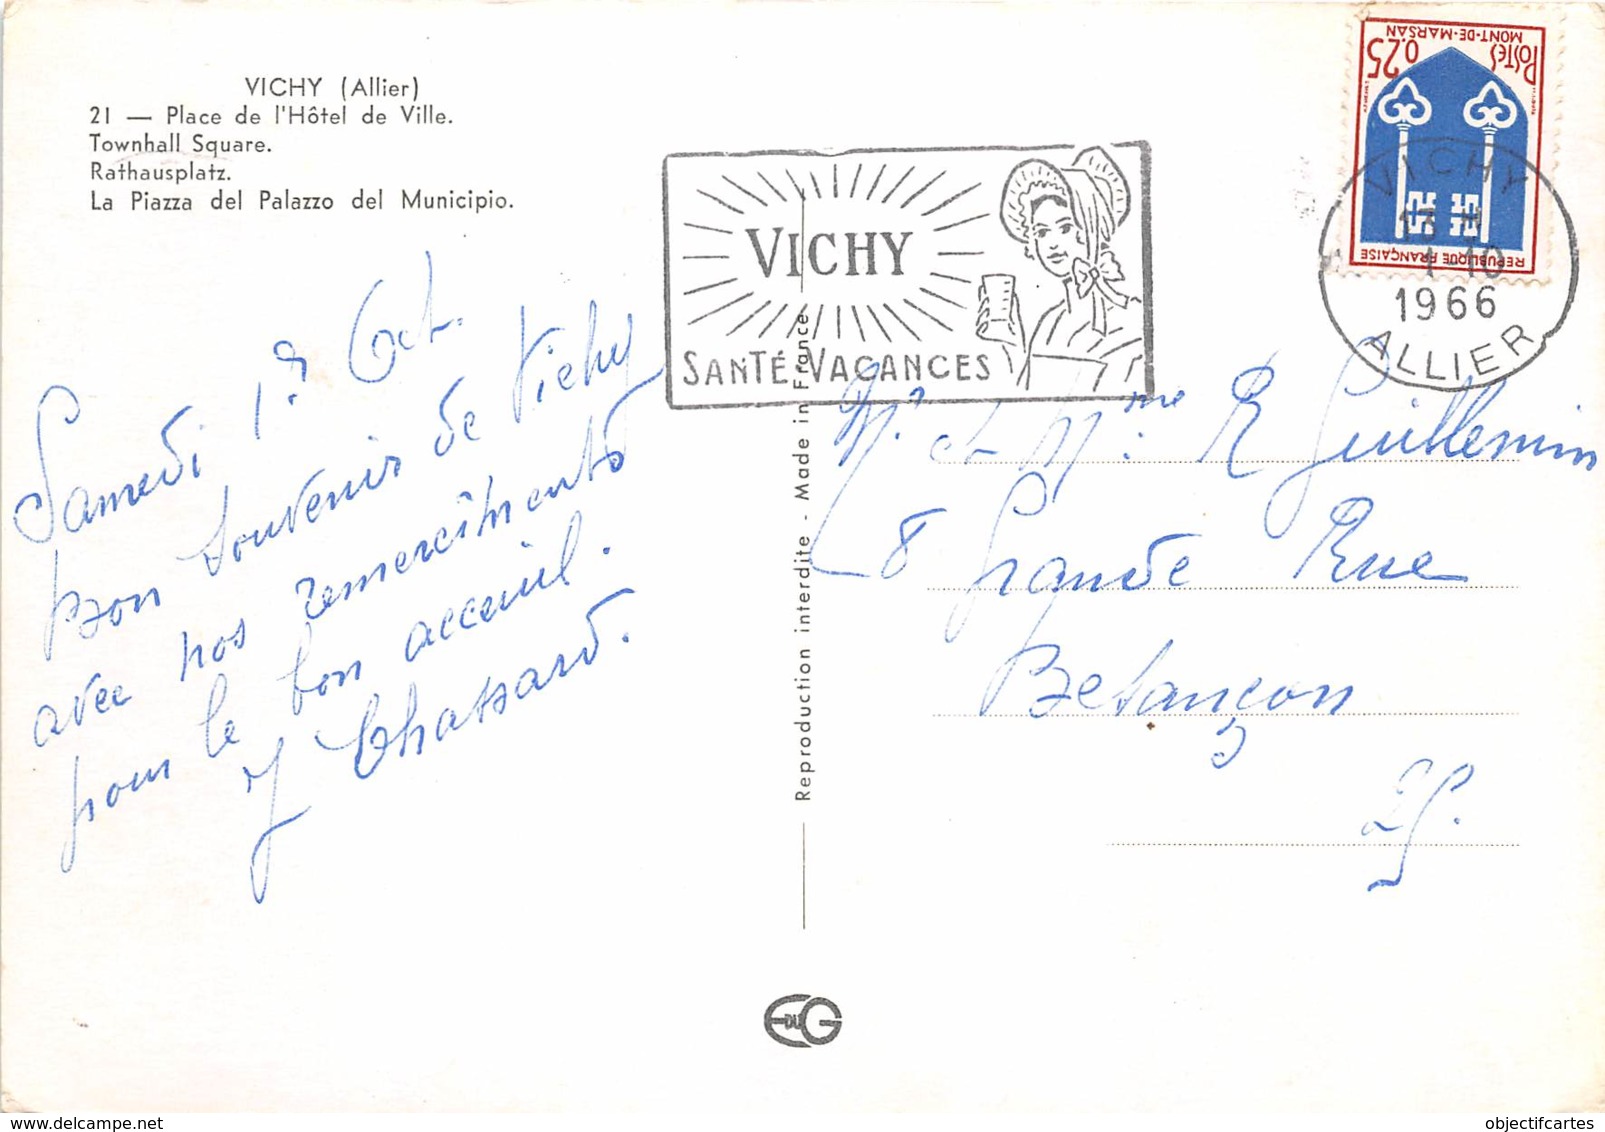 VICHY (Allier)
21 — Place de l'Hôtel de Ville.
Townhall Square.
Rathausplatz.
La Piazza del Palazzo del Municipio.
Samedi 1er Oct.
Bon souvenir de Vichy
avec nos remerciments
pour le bon acceuil.
J Chassard.
VICHY
SANTÉ VACANCES
Reproduction interdite - Made in France
POSTES 0,25
MONT-DE-MARSAN
REPUBLIQUE FRANÇAISE
VICHY
13 H
1-10
1966
ALLIER
Mr et Mme R Guillemin
8 Grande Rue
Besançon
25.
EDUG
objectifcartes